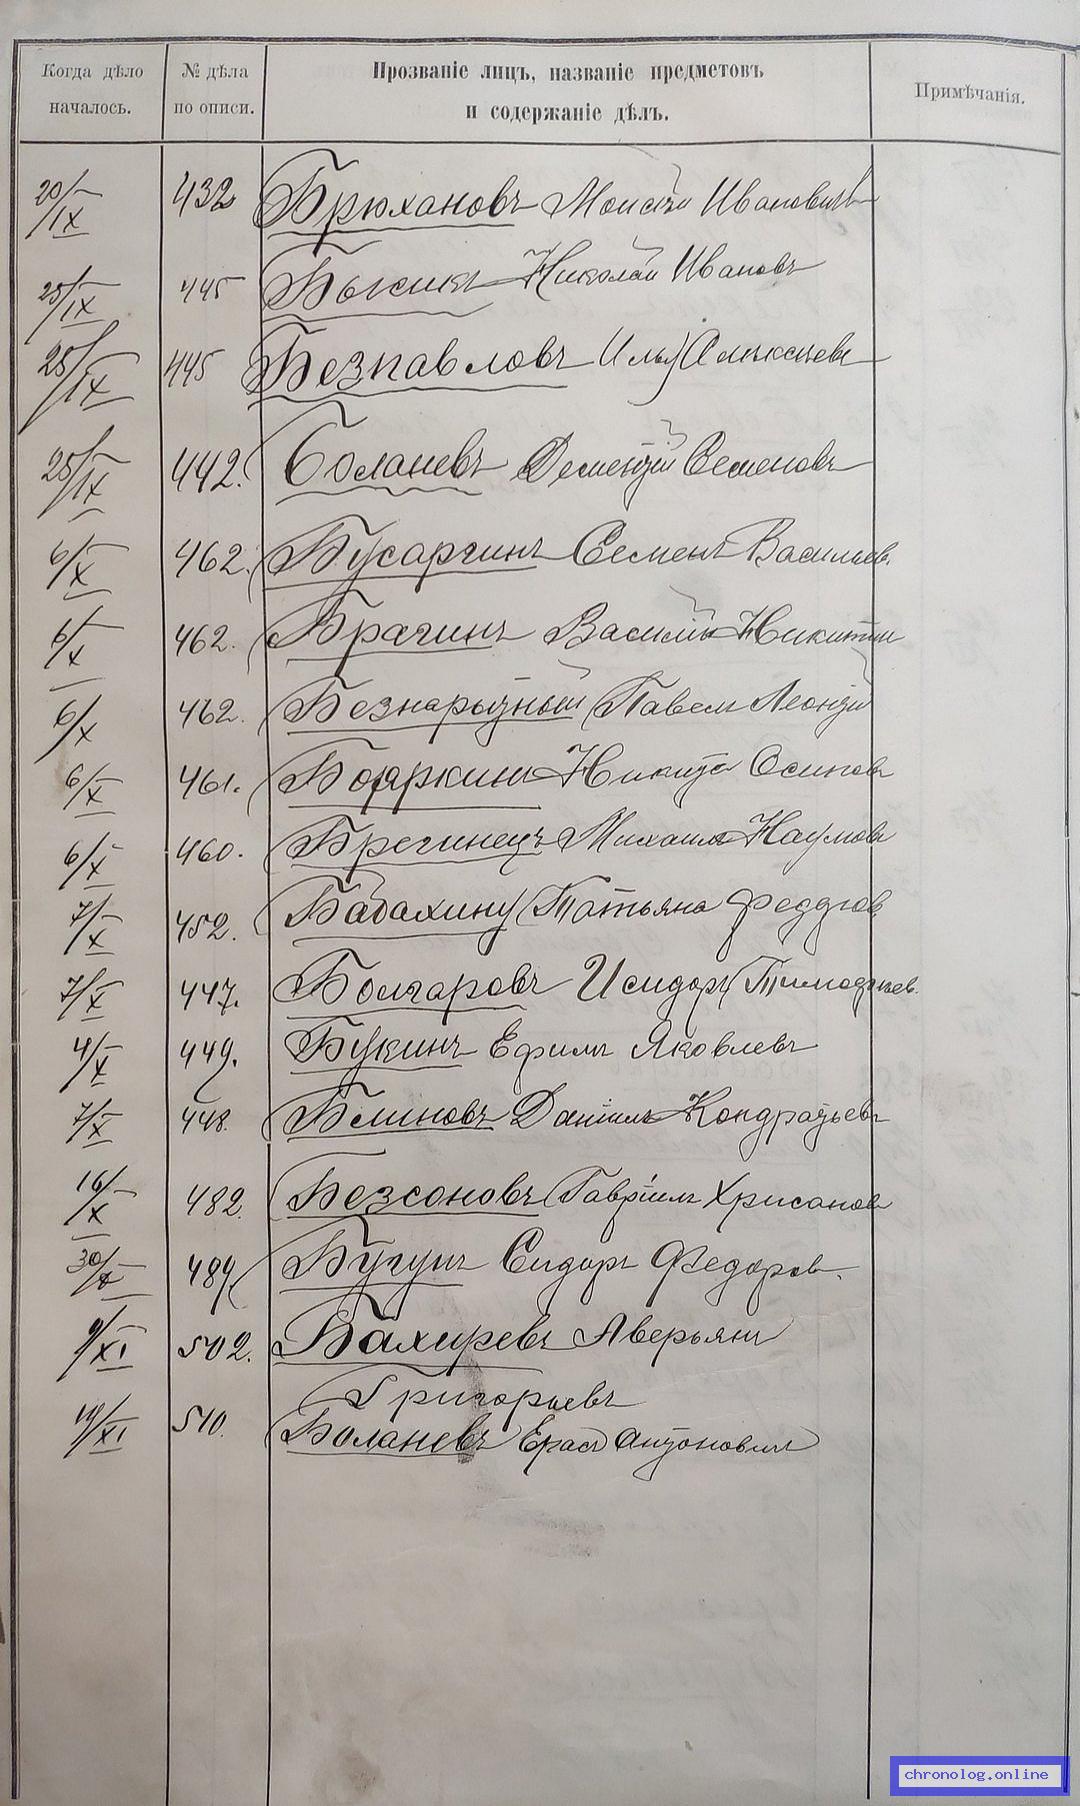 Когда дѣло началось.
№ дѣла по описи.
Прозваніе лицъ, названіе предметовъ
и содержаніе дѣлъ.
Примѣчанія.
20/IX 432 Брюхановъ Моисѣй Ивановичъ
25/IX 445 Быкикъ Николай Ивановъ
25/IX 445 Безпавловъ Илья Алексѣевъ
25/IX 442. Боланевъ Дементій Семеновъ
6/X 462. Бусаргинъ Семенъ Васильев.
6/X 462. Брагинъ Василій Никитин
6/X 462. Безнарыдный Павелъ Леонтій
6/X 461. Бояркинъ Никита Осиповъ
6/X 460. Брегинецъ Михаилъ Наумовъ
7/X 452. Бабахину Татьяна
7/X 447. Болгаровъ Исидоръ Тимофеев.
4/X 449. Букинъ Ефимъ Яковлевъ
7/X 448. Блиновъ Даніилъ Кондратьевъ
16/X 482. Безсоновъ Гавріилъ Хрисанов
30/X 489 Бугунъ Сидоръ Федоров.
9/XI 502. Бахиревъ Аверьянъ
Григорьевъ
19/XI 510. Боланевъ Ерастъ Антоновичъ
chronolog.online